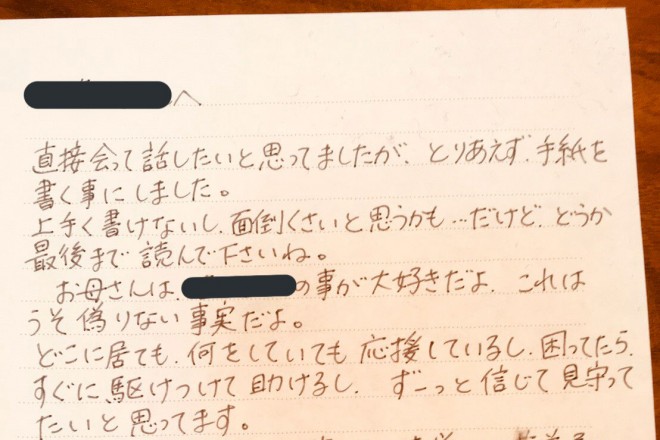 へ
直接会って話したいと思ってましたが、とりあえず、手紙を
書く事にしました。
上手く書けないし、面倒くさいと思うかも…だけど、どうか
最後まで読んで下さいね。
お母さんは、の事が大好きだよ、これは
うそ偽りない事実だよ。
どこに居ても、何をしていても応援しているし、困ってたら、
すぐに駆けつけて助けるし、ずーっと信じて見守って
たいと思ってます。